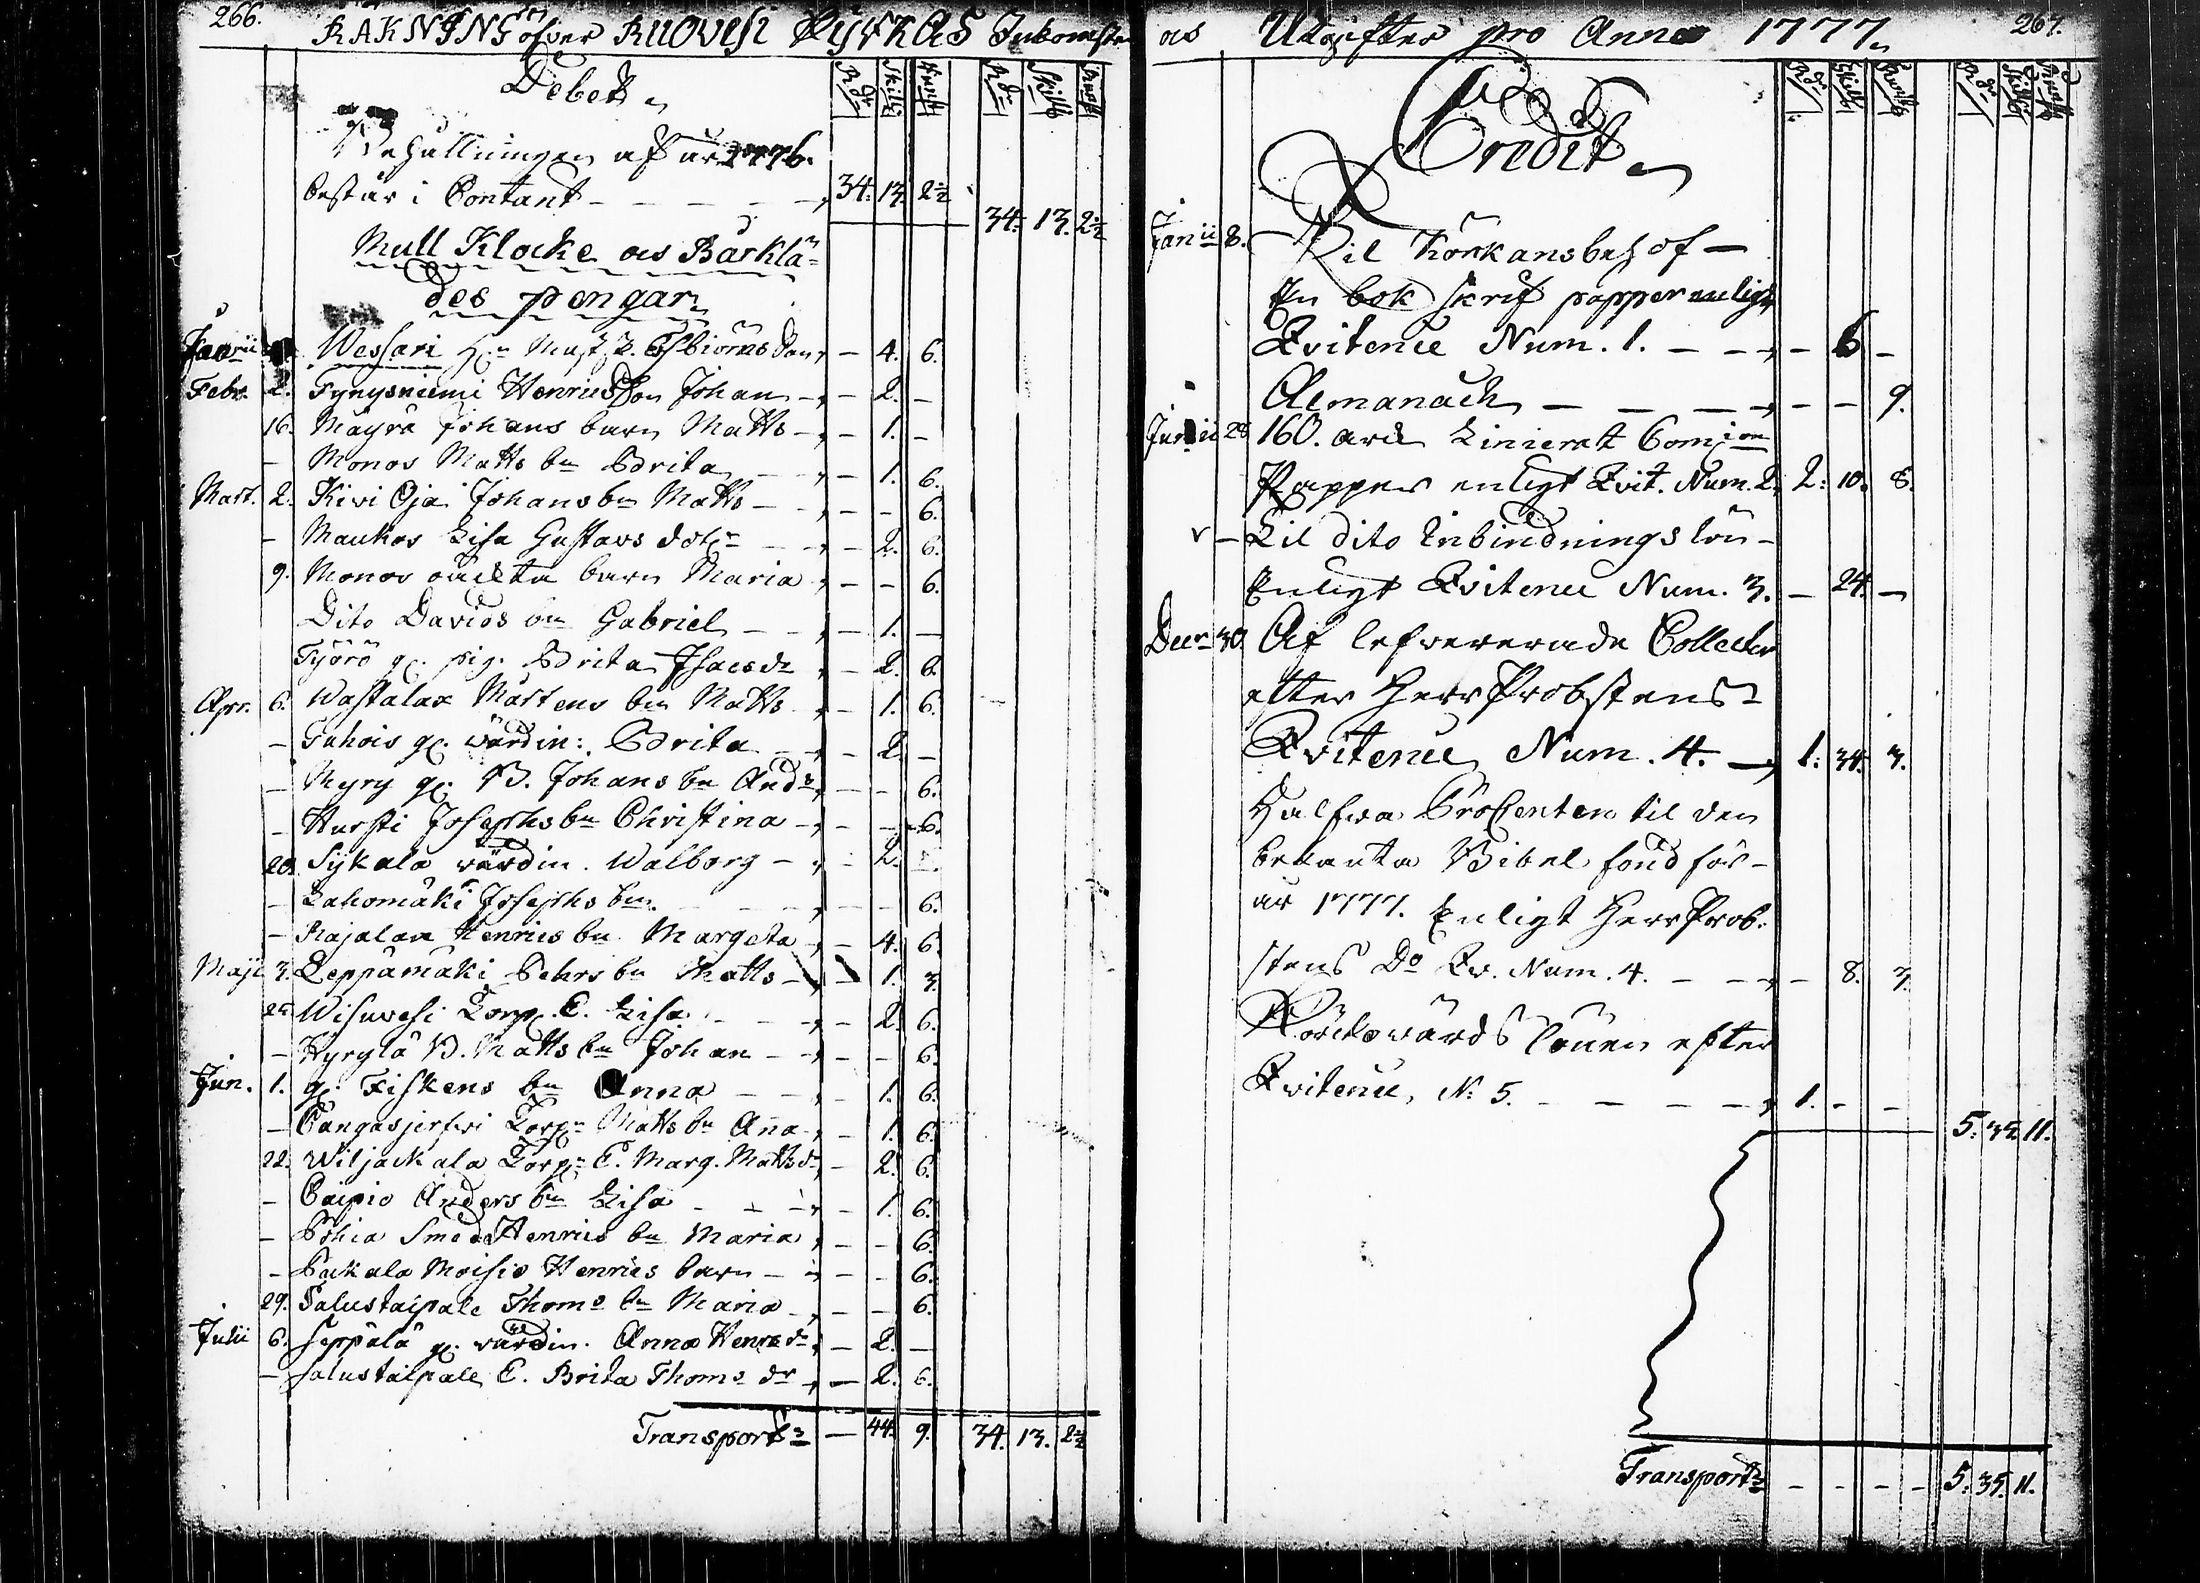 266.
RÄKNING öfver RUOVESI KyrkAS Inkomster
Debet
R:dr Skill: Runst: R:dr Skill: Runst:
Behållningen af år 1776.
består i Contant - - - - 34. 13. 2½
34. 13. 2½
Mull Klocke och Bårklä-
des pengar
Januarii Wessari Esbiörns Son - 4. 6.
Febr. 2. Tynysniemi Henricsson Johan - 2. -
16. Mäyrä Johans barn Matts - 1. -
- Monos Matts bn Brita - 1. 6.
Mart. 2. Kivi Oja Johans bn Matts - - - 6.
- Maukos Lisa Gustavs dotr - 2. 6.
9. Monos oäckta barn Maria - - 6.
Dito Davids bn Gabriel - - 1. -
Työrö gl. pig. Brita Isacs dr - 2. 6.
Apr. 6. Wastalax Mårtens bn Matts - 1. 6.
- Tuhois gl. wärdin: Brita - 2. -
- Myry gl. B. Johans bn And:s - - 6.
- Hursti Josephs bn Christina - - 6.
20. Sykälä wärdin. Walborg - 2. -
- Lahomäki Josephs bn - - 6.
- Rajalax Henrics bn Margeta - 4. 6.
Maji 3. Leppämäki Pehrs bn Matts - 1. 3.
25 Wisuvesi Torp. E. Lisa - 2. 6.
- Hyrylä B. Matts bn Johan - - 6.
Jun. 1. gl. Fiskens bn Anna - 1. 6.
- Cangasjerfwi Torp:n Matts bn Ana - 1. 6.
22. Wiljackala Torp:n E. Marg. Matts dr - 2. 6.
- Caipio Anders bn Lisa - 1. 6.
- Pohia Smeds Henrics bn Maria - - 6.
- Pukala Moisio Henrics barn - - 6.
29. Salustaipale Thoms bn Maria - - 6.
Julii 6. Seppälä gl. wärdin. Anna Henrs dr - 2. -
- Salustaipale E. Brita Thoms dr - 2. 6.
Transport - 44. 9. 34. 13. 2½
och Utgifter pro Anno 1777. 267.
R:dr Skill: Runst: R:dr Skill: Runst:
Credit
Janii 8. Til Körkans behof -
En bok skrif papper enligt
Qvitence Num. 1. - - - 6 -
Almanach - - - - - 9.
Junii 28 160. ark Linierat Comion
Papper enligt Qvit. Num. 2. 2. 10. 8.
- Til dito Inbindnings lön -
Enligt Qvitence Num. 3. - 24. -
Decr 30. Af lefwererade Collecter
efter Herr Probstens
Qvitence Num. 4. - 1. 34. 3.
Halfwa Procenten til den
bekanta Bibel fond för -
år 1777. Enligt Herr Prob-
stens Do Qv. Num. 4. - - - 8. 3.
Körckowärds lönen efter
Qvitence, No 5. - - - - 1. - -
5. 35. 11.
Transport - - - - 5. 35. 11.